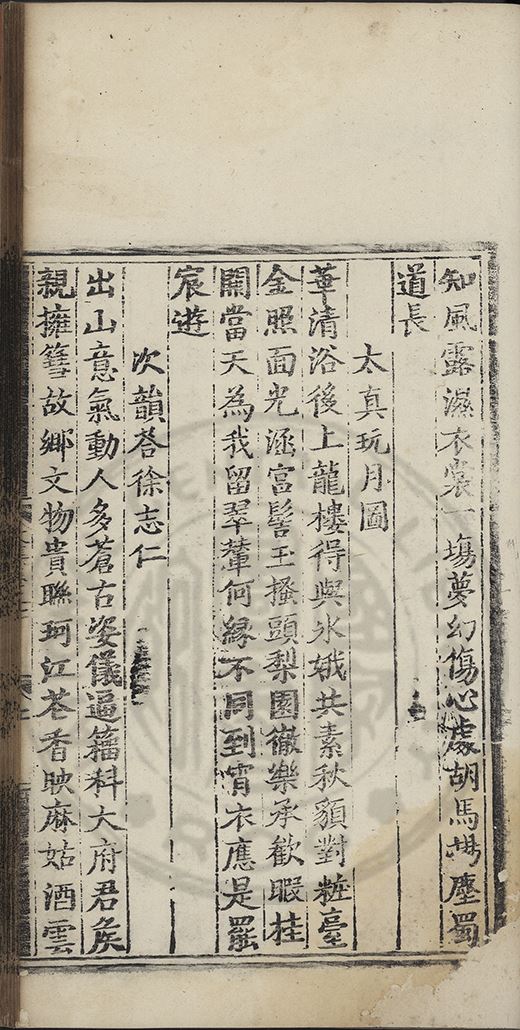 知風露濕衣裳一場夢幻傷心處胡馬塵蜀
道長
太真玩月圖
華清浴後上龍樓得與氷娥共素秋䫉對粧臺
金照面光涵宮髻玉搔頭梨園徹樂承歡暇桂
闕當天為我留翠輦何緣不同到宵衣應是罷
宸遊
次韻荅徐志仁
出山意氣動人多蒼古姿儀逼籕科大府君侯
親擁篲故鄉文物貴聯珂江花香映麻姑酒雲